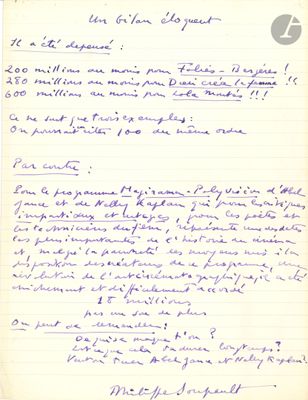 Un bilan éloquent
Il a été dépensé :
200 millions au moins pour Folies-Bergères !
280 millions au moins pour Dieu créa la femme !!
600 millions au moins pour Lola Montès !!!
Ce ne sont que trois exemples :
On pourrait citer 100 du même ordre
Par contre :
Pour le programme Magirama-Polyvision d'Abel
Gance et de Nelly Kaplan qui pour les critiques
impartiaux et , pour les poètes et
les techniciens du film, représente une des dates
les plus importantes de l'histoire du cinéma
et malgré la pauvreté des moyens mis à la
disposition des créateurs de ce programme, une
révolution de l'art cinématographique, il a été
chichement et difficilement accordé
18 millions
pas un sou de plus
On peut se demander :
De qui se moque-t'on ?
Est-ce que cela va durer longtemps ?
Abel Gance et Nelly Kaplan ?
Philippe Soupault